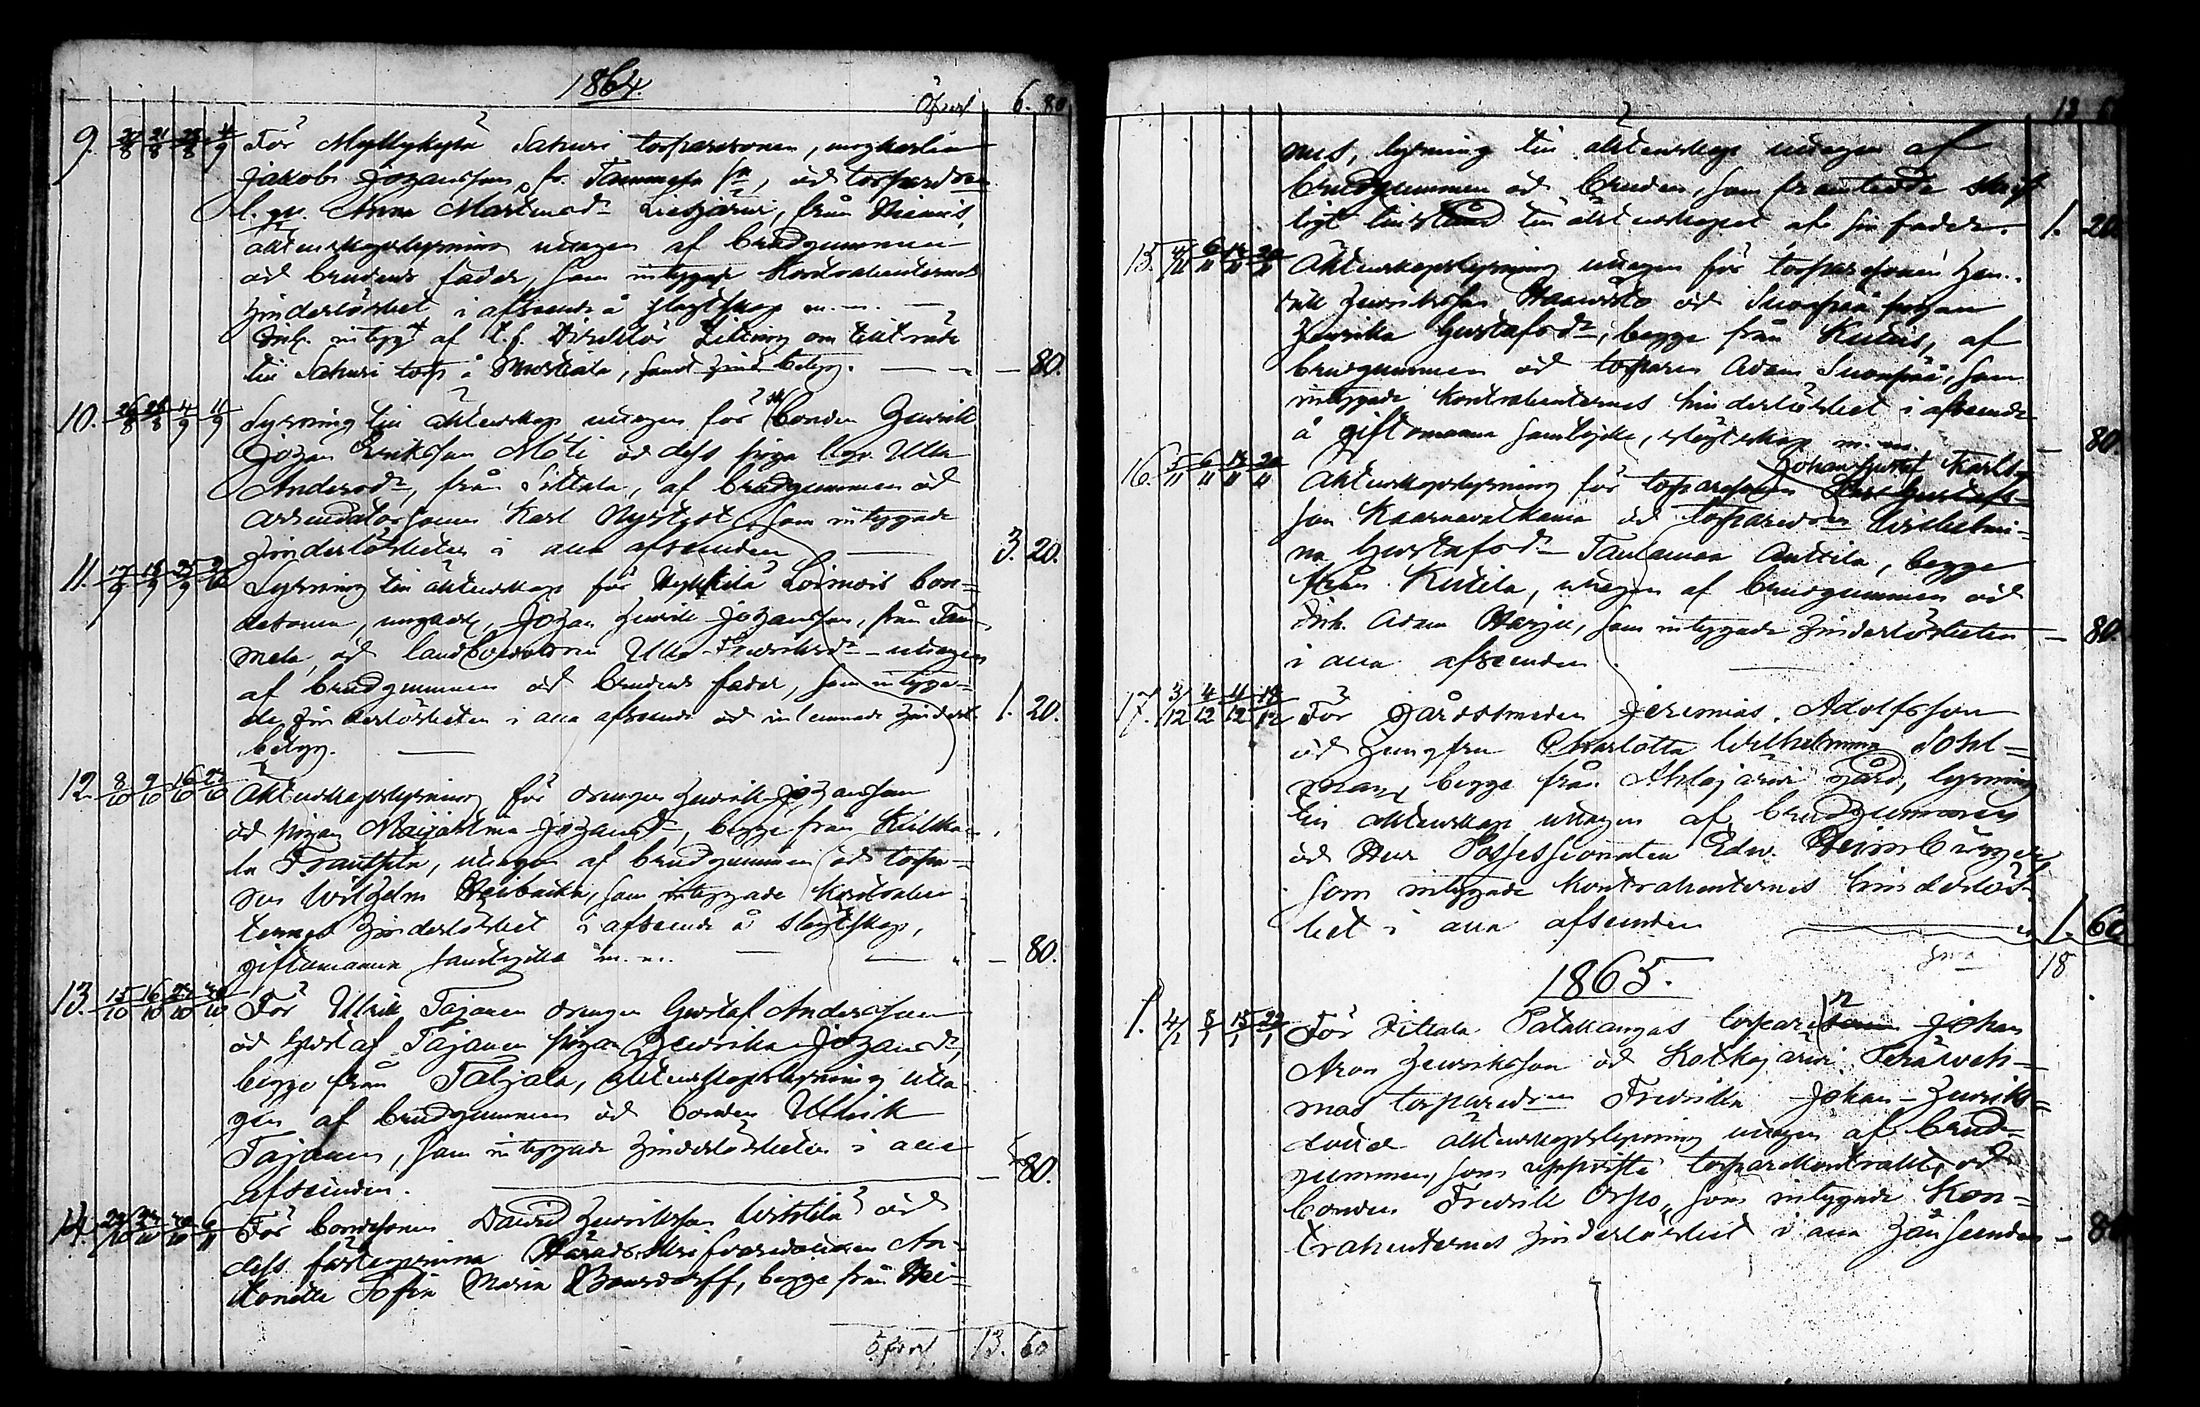 1864.
Öfverf 6. 80
9. 20/8 21/8 28/8 4/9 För Myllykylä Sakuri torparesonen, ungkarlen
Jakob Johansson, fr. Tammela sn, och torparedrn
l. qv. Anna Martinsdr Liesjärvi, från
äktenskapslysning uttagen af brudgummen
och brudens fader, som intygade Kontrahenternes
hinderlöshet i afseende å slägtskap m. m.
intygat af t. f. Direktör om tillträde
till Sakuri torp å Mustiala, samt hind. betyg. — 80.
10. 26/8 28/8 4/9 11/9 Lysning till äktenskap uttagen för bonden Henrik
Johan Eriksson Möti och dess piga l. qv. Ulla
Andersdr, från Sittala, af brudgummen och
arrendatorsonen Karl Nystedt, som intygade
hinderlösheten i alla afseenden 3. 20.
11. 17/9 18/9 25/9 2/10 Lysning till äktenskap för Nykkilä Loimois bon=
desonen, ungkarl. Johan Henrik Johansson, från Tam
mela, och landbondedottren Ulla Fredriksdr uttagen
af brudgummen och brudens fader, som intyga=
de hinderlösheten i alla afseende och inlemnade hinderl.
betyg. 1. 20.
12. 8/10 9/10 16/10 23/10 Äktenskapslysning för drengen Henrik Johansson
och pigan Maja Stina Johansdr, begge från Kuilka=
la Franssila, uttagen af brudgummen och torpa=
ren Wilhelm Heikkilä, som intygade Kontrahen
ternes hinderlöshet i afseende å slägtskap,
giftomannen samtycke m. m. — 80.
13. 15/10 16/10 23/10 30/10 För Ullrik Tajanen drengen Gustaf Andersson
och Gustaf Tajanen pigan Henrika Johansdr,
begge från Taljala, äktenskapslysning utta
gen af brudgummen och bonden Ullrik
Tajanen, som intygade hinderlösheten i alla
afseenden. — 80.
14. 22/10 23/10 30/10 6/11 För bondesonen David Henriksson Wistilä och
dess fästeqvinna Häradsskrifvaredottren An=
tonette Sofia Maria Bonsdorff, begge från Hei=
Öfverf 13. 60
13 60
nus, lysning till äktenskap uttagen af
brudgummen och bruden, som framtedde skrif
tligt tillstånd till äktenskapet af sin fader. 1. 20
15. 4/11 6/11 13/11 20/11 Äktenskapslysning uttagen för torparesonen Hen=
drik Henriksson Haavisto och Suonpää pigan
Henrika Gustafsdr, begge från Kutis, af
brudgummen och torparen Adam Suonpää, som
intygade Kontrahenternes hinderlöshet i afseende
å giftomanna samtycke, slägtskap m. m. — 80.
16. 5/11 6/11 13/11 20/11 Äktenskapslysning för torparesonen Johan Gustaf Karls=
son Kaarnavalkama och torparedrn Wilhelmi=
na Gustafsdr Taulamaa Anttila, begge
från Kutila, uttagen af brudgummen och
Adam Harju, som intygade hinderlösheten — 80.
i alla afseenden.
17. 3/12 4/12 11/12 18/12 För gårdssmeden Jeremias Adolfsson
och Jungfru Charlotta Wilhelmina Sohl=
man, begge från gård, lysning
till äktenskap uttagen af brudgummen
och Herr Possessionaten Edw. Heimbürger,
som intygade Kontrahenternes hinderlös=
het i alla afseenden 1. 60
S:ma 18
1865.
1. 4/1 8/1 15/1 22/1 För Sittala Patakangas torparesonen Johan
Aron Henriksson och Kotkajärvi
mas torparedrn Fredrika Johan-Henriks=
dotter äktenskapslysning uttagen af brud=
gummen, som uppviste torparekontrakt, och
bonden Fredrik Orpo, som intygade Kon=
trahenternes hinderlöshet i alla hänseenden — 80